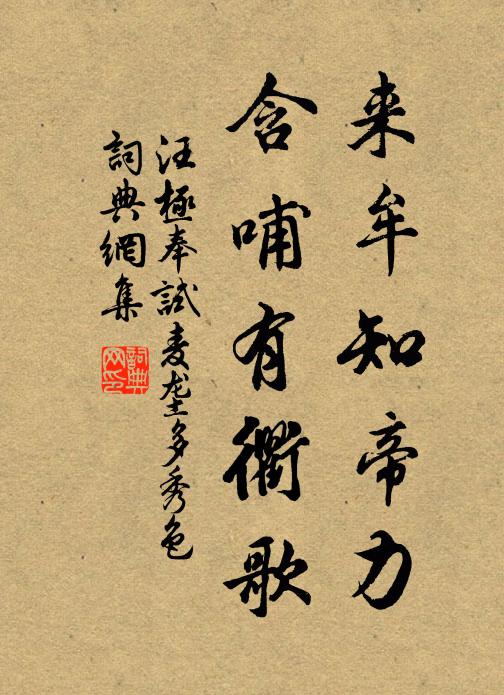 来牟知帝力
含哺有衢歌
汪極奉試麦垄多秀色
詞典網集
詞典网印